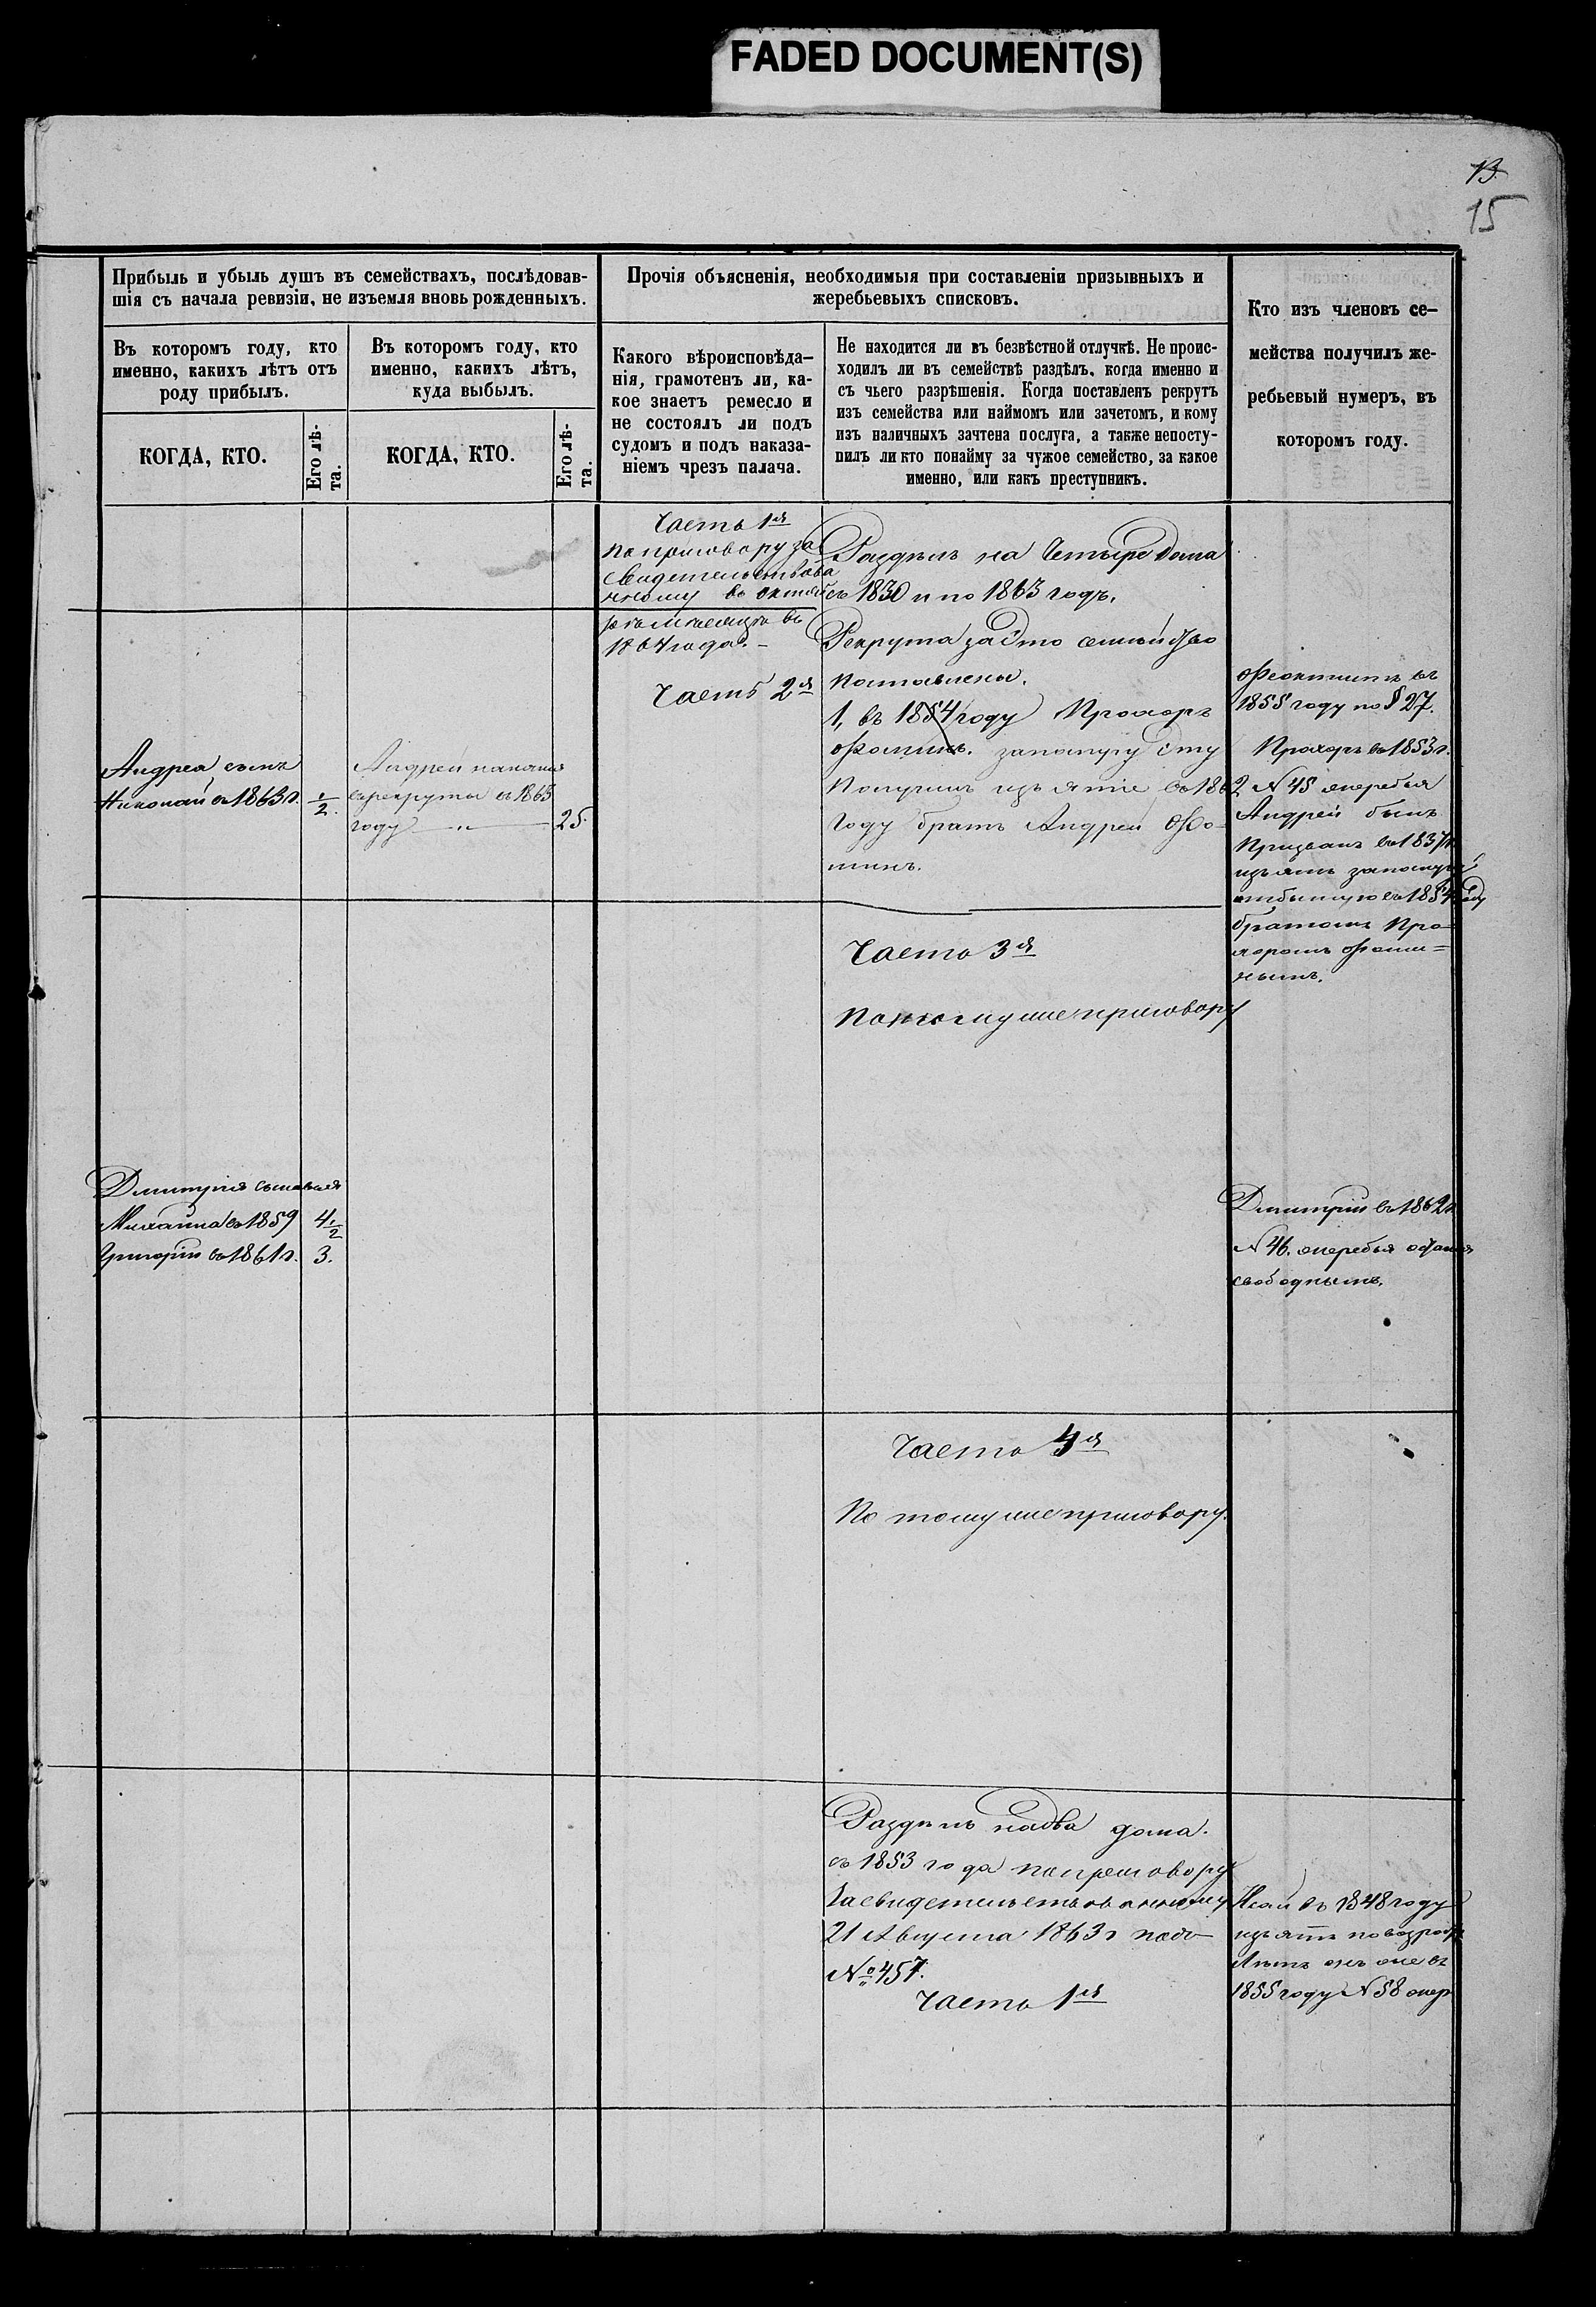 FADED DOCUMENT(S)
13.
15
Прибыль и убыль душъ въ семействахъ, послѣдовав-
шія съ начала ревизіи, не изъемля вновь рожденныхъ.
Въ которомъ году, кто
именно, какихъ лѣтъ отъ
роду прибылъ.
КОГДА, КТО.
Его лѣ-
та.
Въ которомъ году, кто
именно, какихъ лѣтъ,
куда выбылъ.
КОГДА, КТО.
Его лѣ-
та.
Прочія объясненія, необходимыя при составленіи призывныхъ и
жеребьевыхъ списковъ.
Какого вѣроисповѣда-
нія, грамотенъ ли, ка-
кое знаетъ ремесло и
не состоялъ ли подъ
судомъ и подъ наказа-
ніемъ чрезъ палача.
Не находится ли въ безвѣстной отлучкѣ. Не проис-
ходилъ ли въ семействѣ раздѣлъ, когда именно и
съ чьего разрѣшенія. Когда поставленъ рекрутъ
изъ семейства или наймомъ или зачетомъ, и кому
изъ наличныхъ зачтена послуга, а также непосту-
пилъ ли кто понайму за чужое семейство, за какое
именно, или какъ преступникъ.
Кто изъ членовъ се-
мейства получилъ же-
ребьевый нумеръ, въ
которомъ году.
Часть 1я
по приговору за
свидетельствова
нному въ октяб
ре месяце въ
1864 года. -
Часть 2я
Раздѣлъ на Четыре Дома
съ 1830 и по 1863 годъ.
Рекрута за Это семейство
поставлены.
1, въ 1854 году Прохоръ
Фоминъ. запослугу Эту
Получилъ изъятіе въ 186
году братъ Андрей Фо-
минъ.
Феоктистъ въ
1855 году по § 27.
Прохоръ въ 1853 г.
2 N 45 жеребья
Андрей былъ
Призванъ въ 1837 г.
изъятъ запослугу
отбытую въ 1854 году
братомъ Про-
хоромъ Фоми=
нымъ.
Андрея сынъ
Николай въ 1863 г. 1/2.
Андрей
въ рекруты въ 1865
году — " — 25.
Часть 3я
По тому же приговору
Дмитрія сыновья
Михаила въ 1859 4 1/2
Григорій въ 1861 г. 3.
Дмитрій въ 1862 г.
N 46. жеребья остался
свободнымъ.
Часть 4я
По тому же приговору.
Раздѣлъ на два дома.
съ 1853 года по приговору
Засвидетельствованному
21 Августа 1863 г подъ
№ 457.
Часть 1я
въ 1848 году
изъятъ по возрасту
Лѣтъ онъ же въ
1855 году N 58 жер